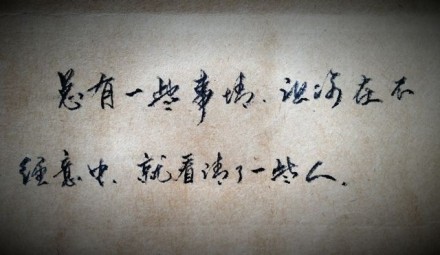 总有一些事情、让你在不
经意中、就看清了一些人.